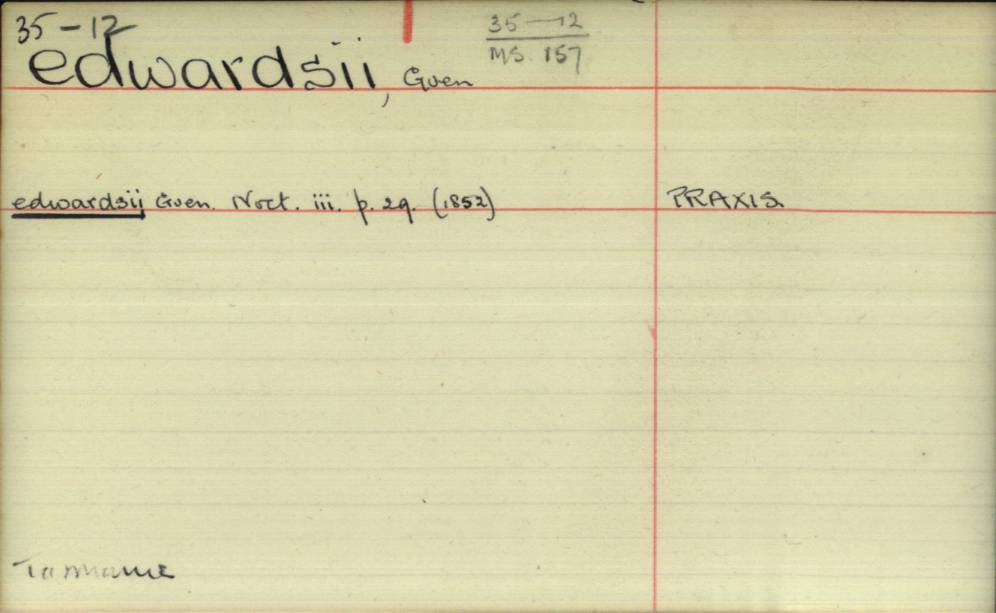 35-12
35-12
MS. 157
edwardsii, Guen
edwardsij Guen. Noct. iii. p. 29. (1852) PRAXIS.
Tasmanie